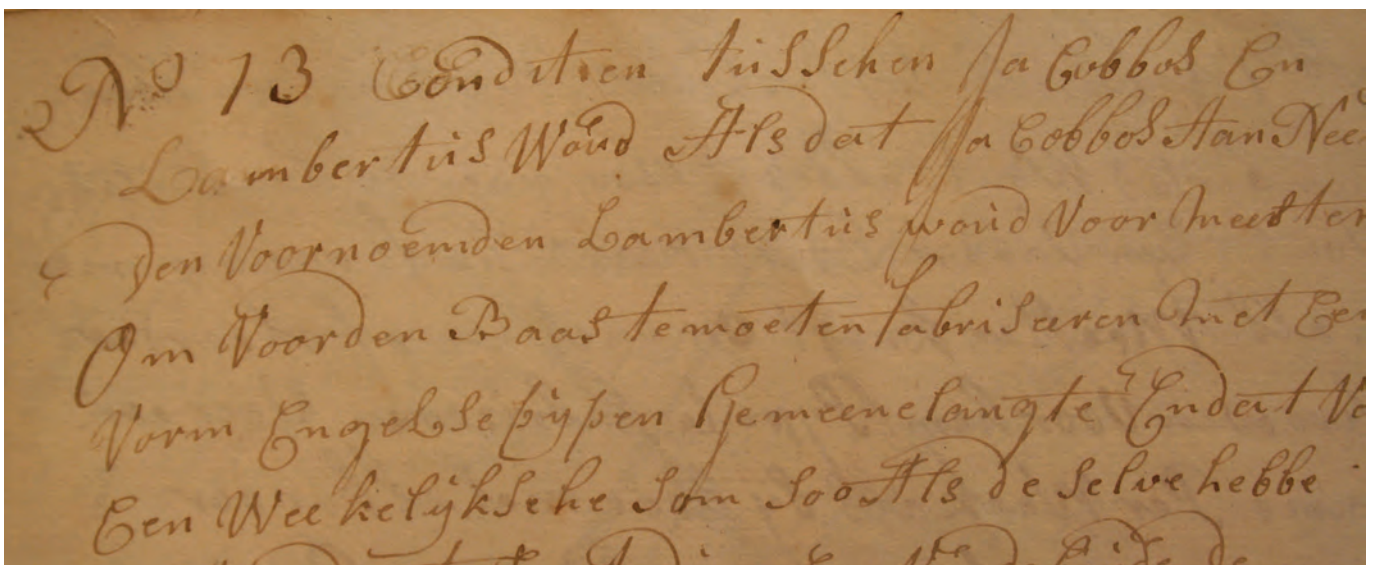 No 13 Conditien tusschen Ja Cobbos En
Lambertus Woud Als dat Ja Cobbos Aan Nee
Den Voornoemden Lambertus woud Voor Meester
Om Voorden Baas te moeten fabriseren Met Een
Vorm Engelse pijpen Gemeene langte Endat Vo
Een Weekelijksche Som soo Als de selve hebbe